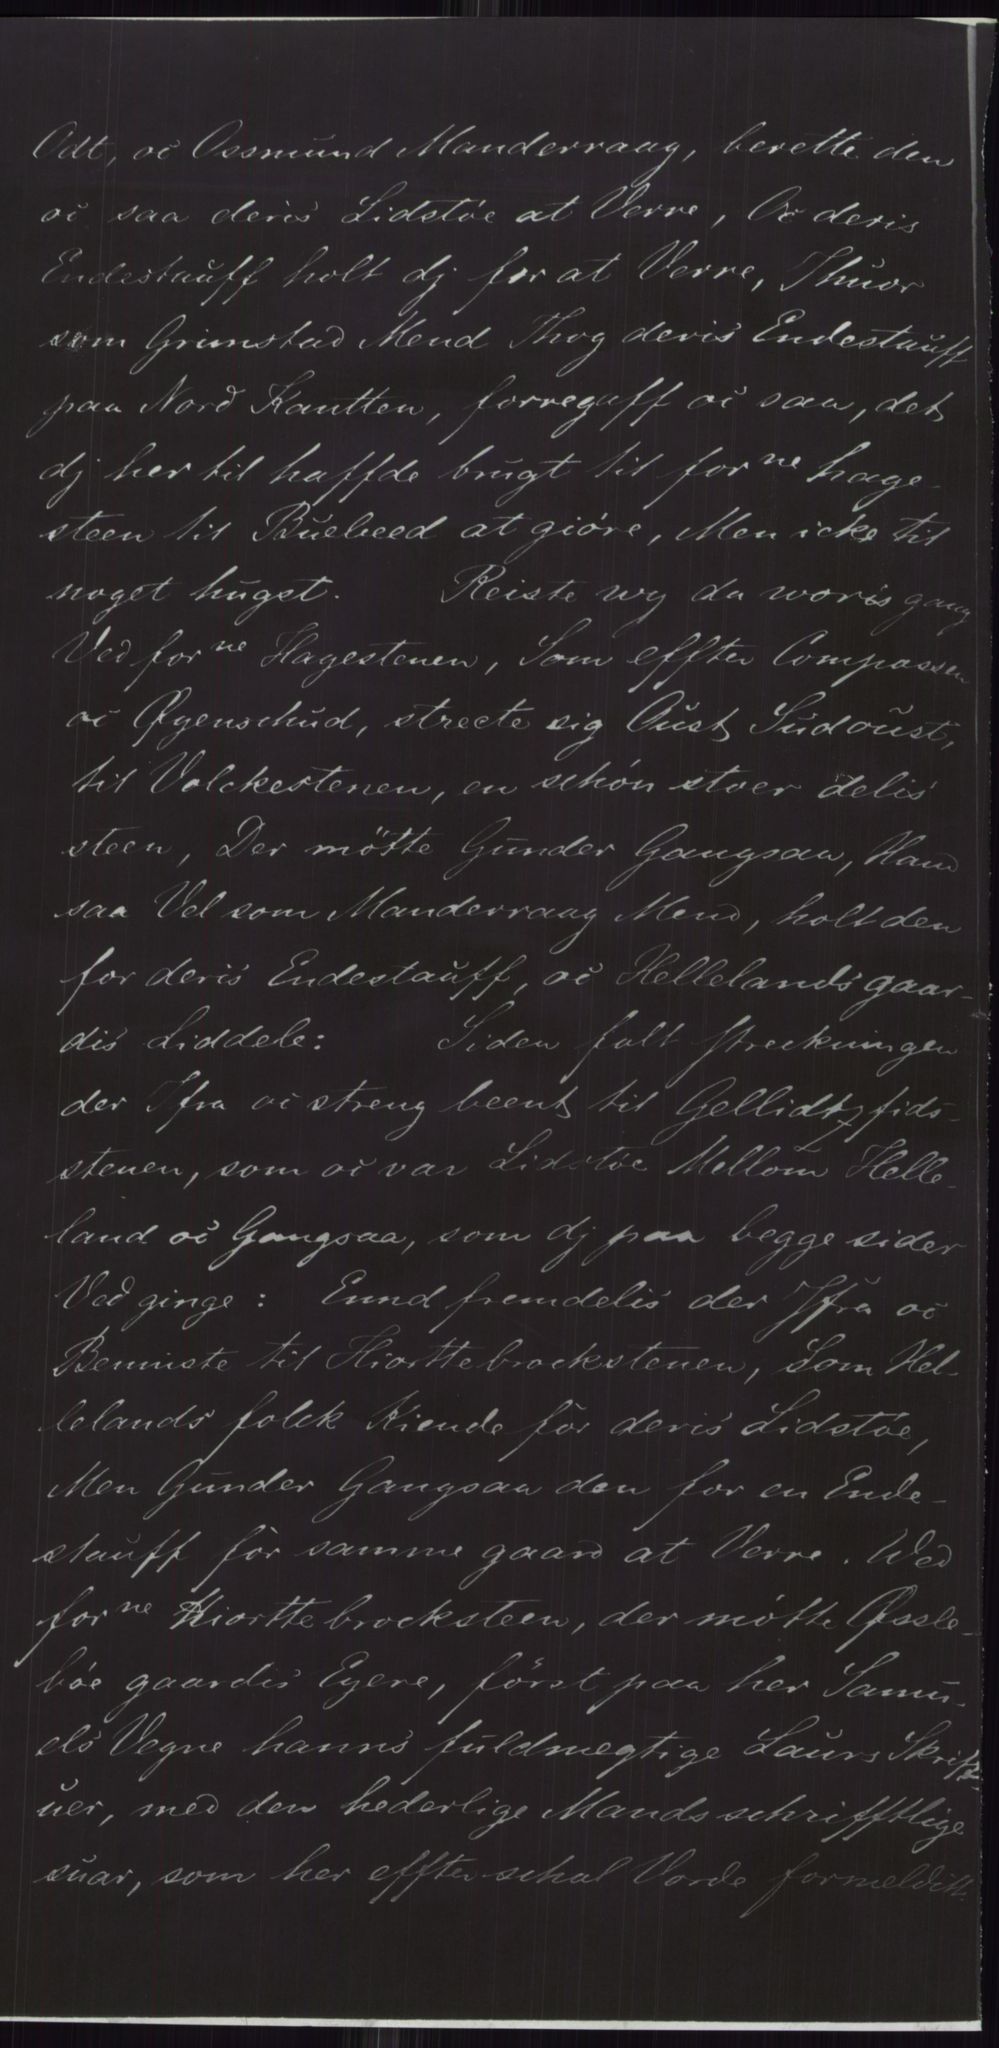 Odt, oc Ossmund Manderraag, berette den
oc saa deris Lidstöe at Verre, Oc deris
Endestauff holt dj for at Verre, Thuor
som Grimstad Mend Thog deris Endestauff
paa Nord Kantten, forregaff oc saa, det
dj her til haffde brugt til for ne hage-
steen til Buebeed at giöre, Men icke til
noget hugst. Reiste wy da woris gang
Ved for ne Hagestenen, Som effter Compassen
oc Øyenschud, strecte sig Oust Sudoust,
til Volckestenen, en schön stoer delis
steen, Der mötte Gunder Gangsaa, Hand
saa Vel som Manderraag Mend, holt den
for deris Endestauff, oc Hellelands gaar-
dis Liddele: Siden falt streckningen
der Ifra oc streng beent til Gellidtzfids-
stenen, som oc var Lidstöe Mellom Helle-
land oc Gangsaa, som dj paa begge sider
Ved ginge: Ennd fremdelis der Ifra oc
Benniste til Hiorttebrockstenen, Som Hel-
lelands folck Kiende for deris Lidstöe,
Men Gunder Gangsaa den for en Ende-
stauff for samme gaard at Verre. Wed
for ne Hiorttebrocksteen, der mötte Øssle-
böe gaardis Eyere, först paa her Samu-
els Vegne hanns fuldmegtige Laurs Skriff-
uer, med den hederlige Mands schrifftlige
suar, som her effter schal Vorde formeldit